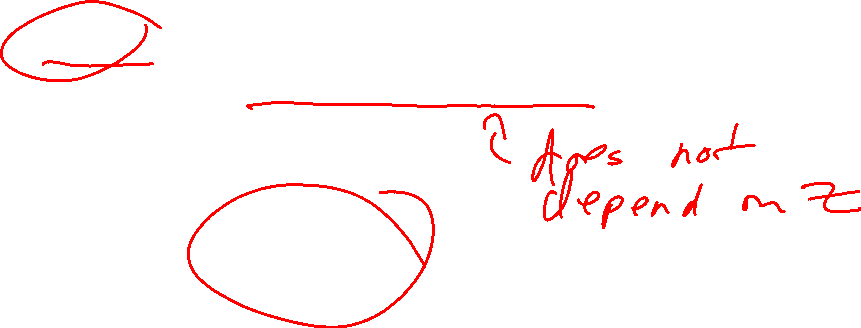 does not
depend on Z